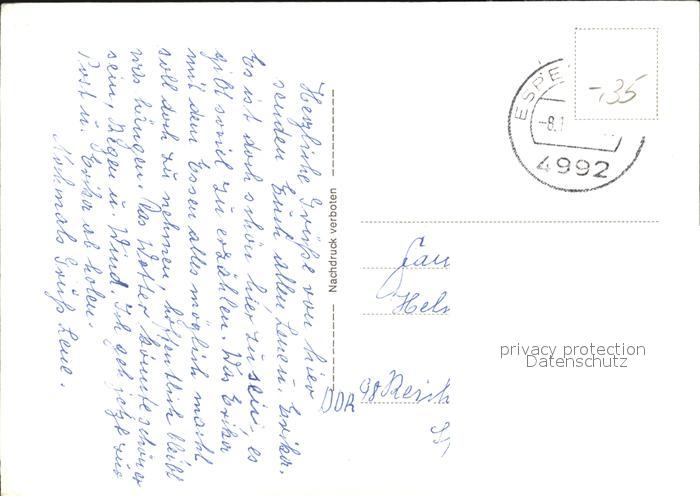 Herzliche Grüße von hier
senden Euch allen Lene u. Erika.
Es ist doch schön hier zu sein, es
gibt soviel zu erzählen. Was Erika
mit dem Essen alles möglich macht
soll doch zu nehmen, hoffentlich bleibt
was hängen. Das Wetter könnte schöner
sein, Regen u. Wind. Ich geh jetzt zur
Post u. Erika ab holen.
Nochmals Gruß Lene.
Nachdruck verboten
ESPE
-8.1
4992
-,35
Hel
DDR 98 Reich
privacy protection
Datenschutz